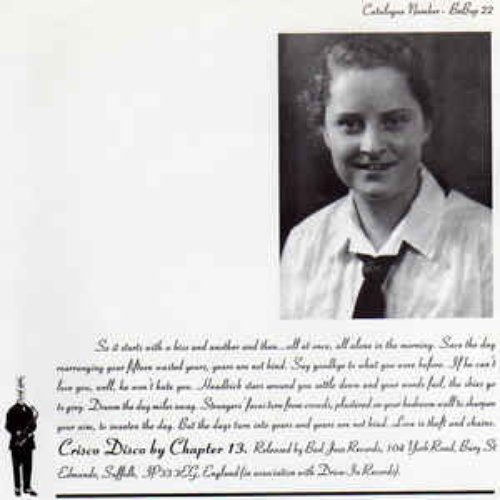 Catalogue Number - BeBop 22
So it starts with a kiss and another and then...all at once, all alone in the morning. Save the day
rearranging your fifteen wasted years, years are not kind. Say goodbye to what you were before. If he can't
love you, well, he won't hate you. Headlock stars around you settle down and your words fail, the skies go
to grey. Dream the day miles away. Strangers' faces torn from crowds, plastered on your bedroom wall to sharpen
your aim, to sweeten the day. But the days turn into years and years are not kind. Love is theft and chains.
Crisco Disco by Chapter 13. Released by Bad Jazz Records, 104 York Road, Bury St
Edmunds, Suffolk, IP33 3EG, England (in association with Drive-In Records).